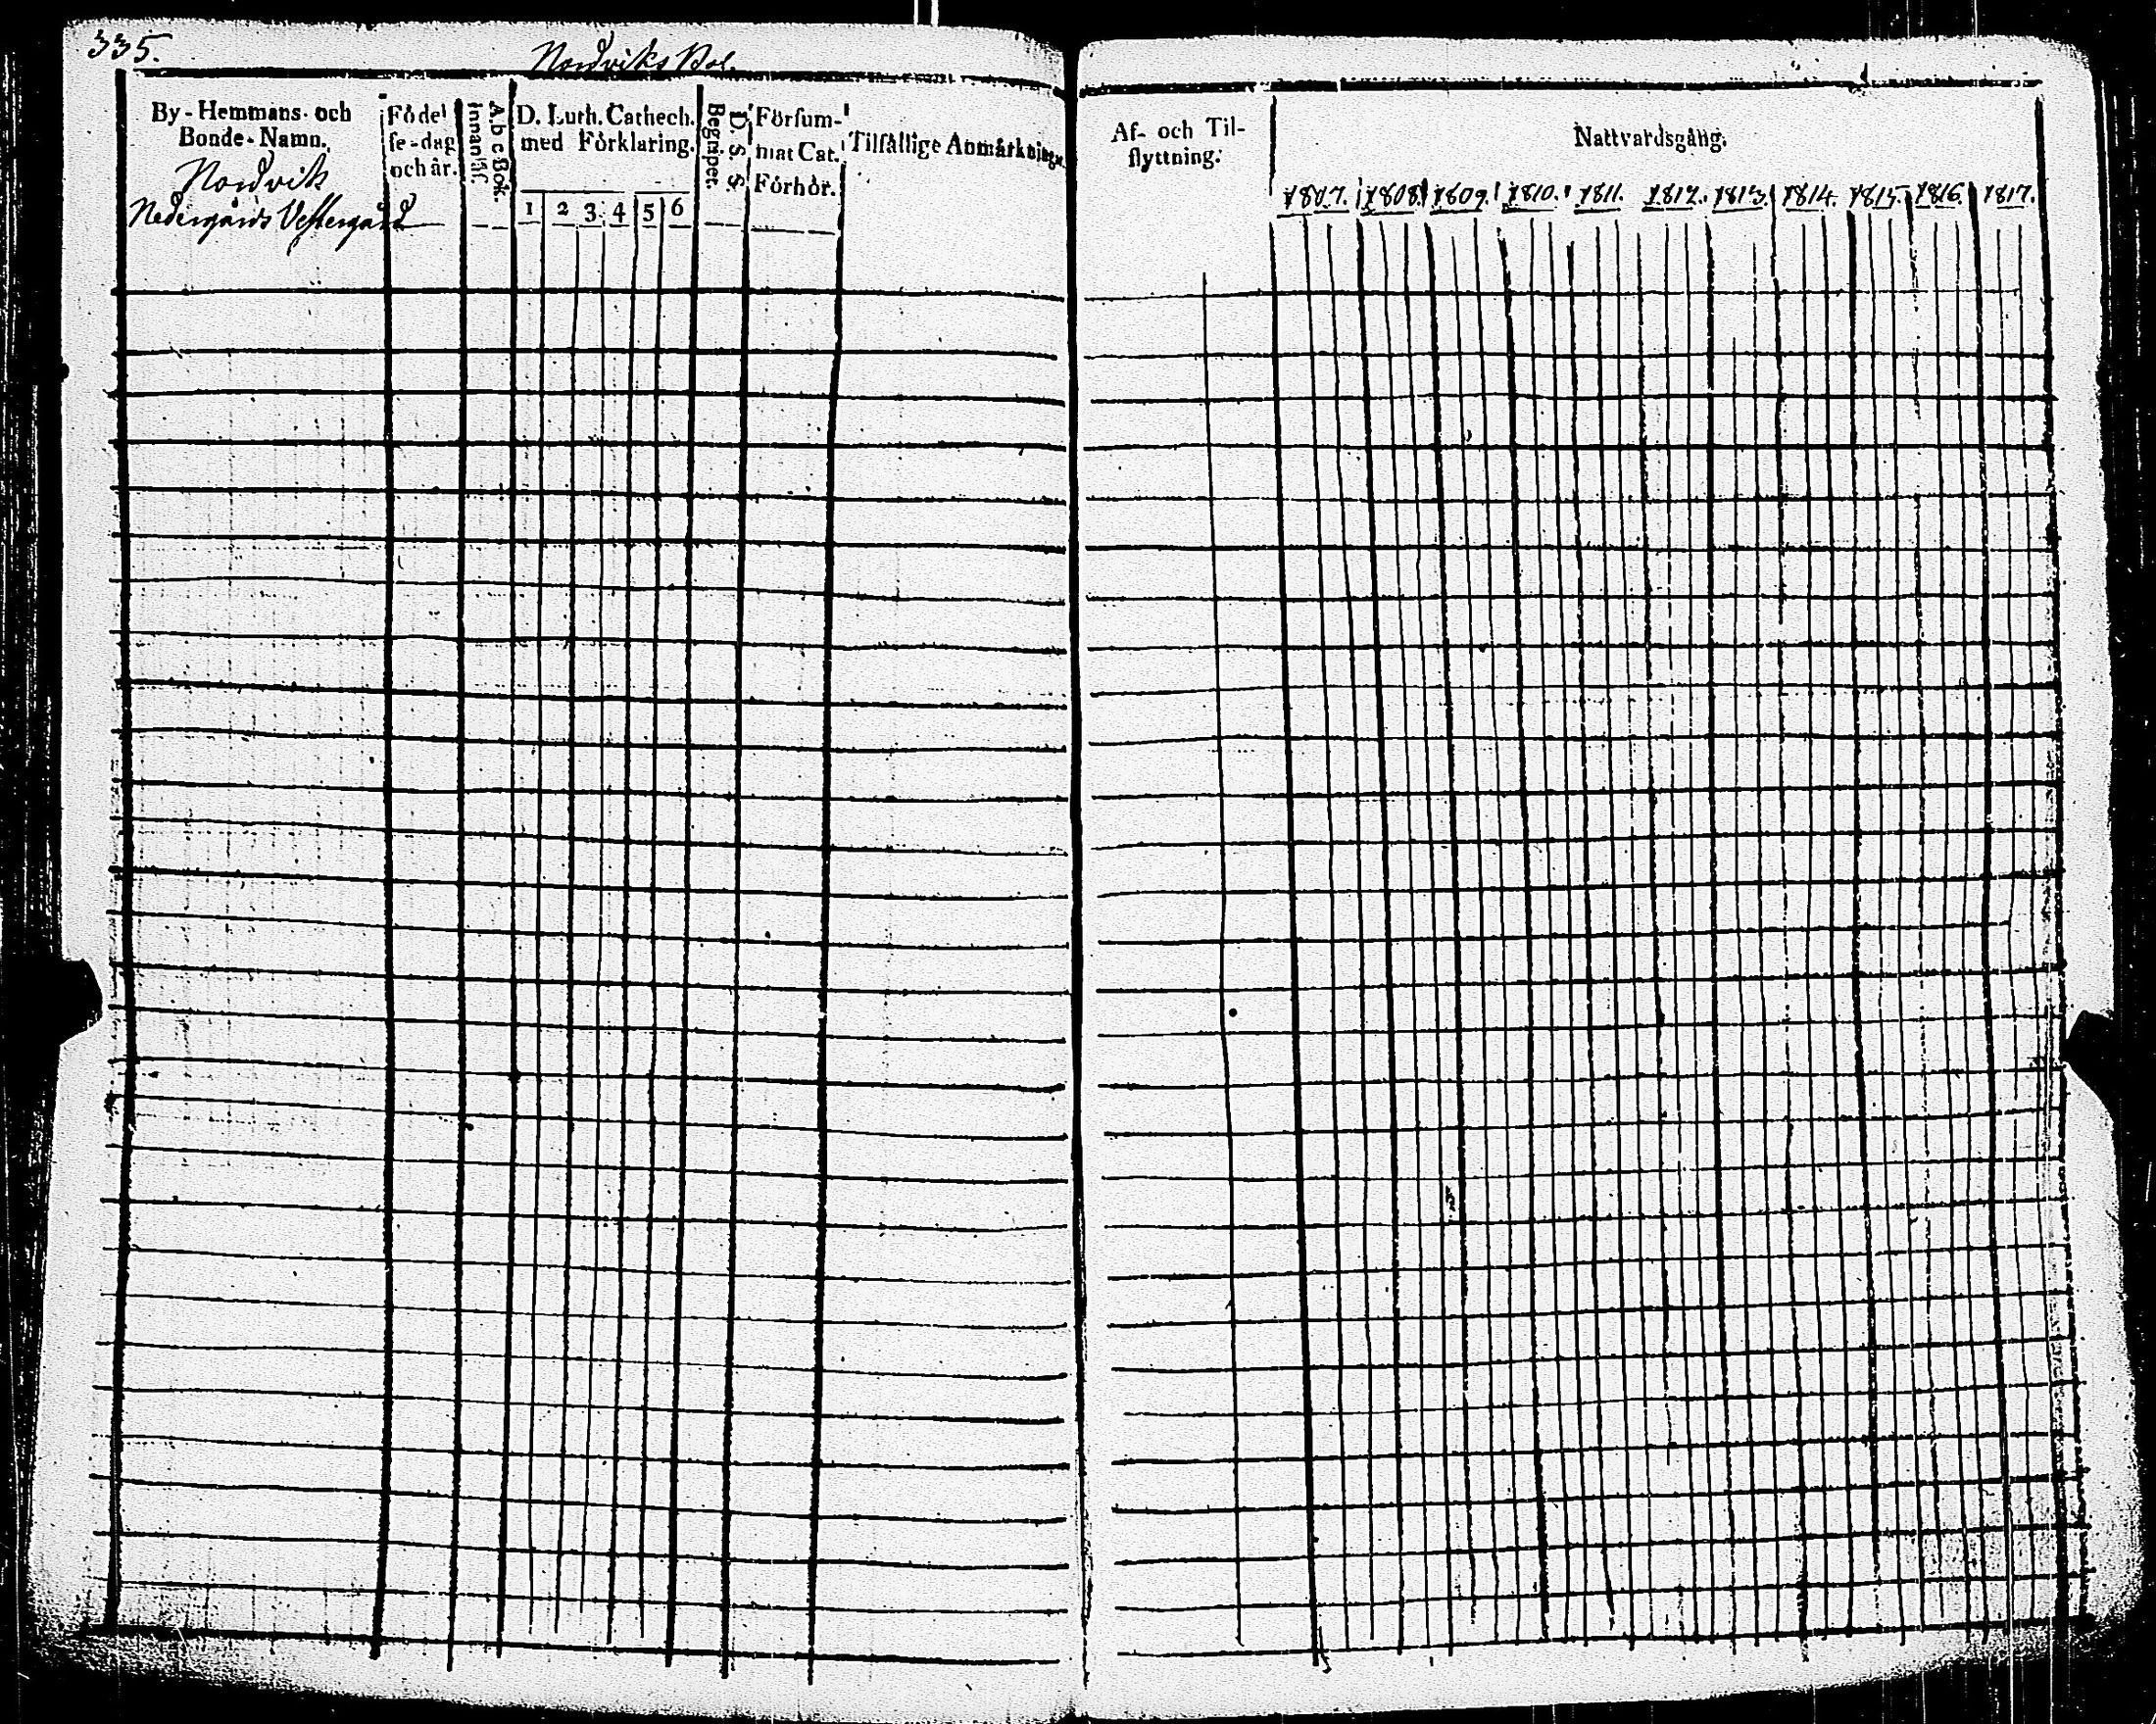 335.
Nordviks Bol.
By-Hemmans- och
Bonde-Namn.
Nordvik
Nedergårds Vestergård
Födel
se-dag
och år.
A b c Bok.
Innanläs.
D. Luth. Cathech.
med Förklaring.
1 2 3 4 5 6
D. S. S.
Begriper.
Försum-
mat Cat.
Förhör.
Tilfällige Anmärkningar
Af- och Til-
flyttning.
Nattvardsgång.
1807. 1808. 1809. 1810. 1811. 1812. 1813. 1814. 1815. 1816. 1817.